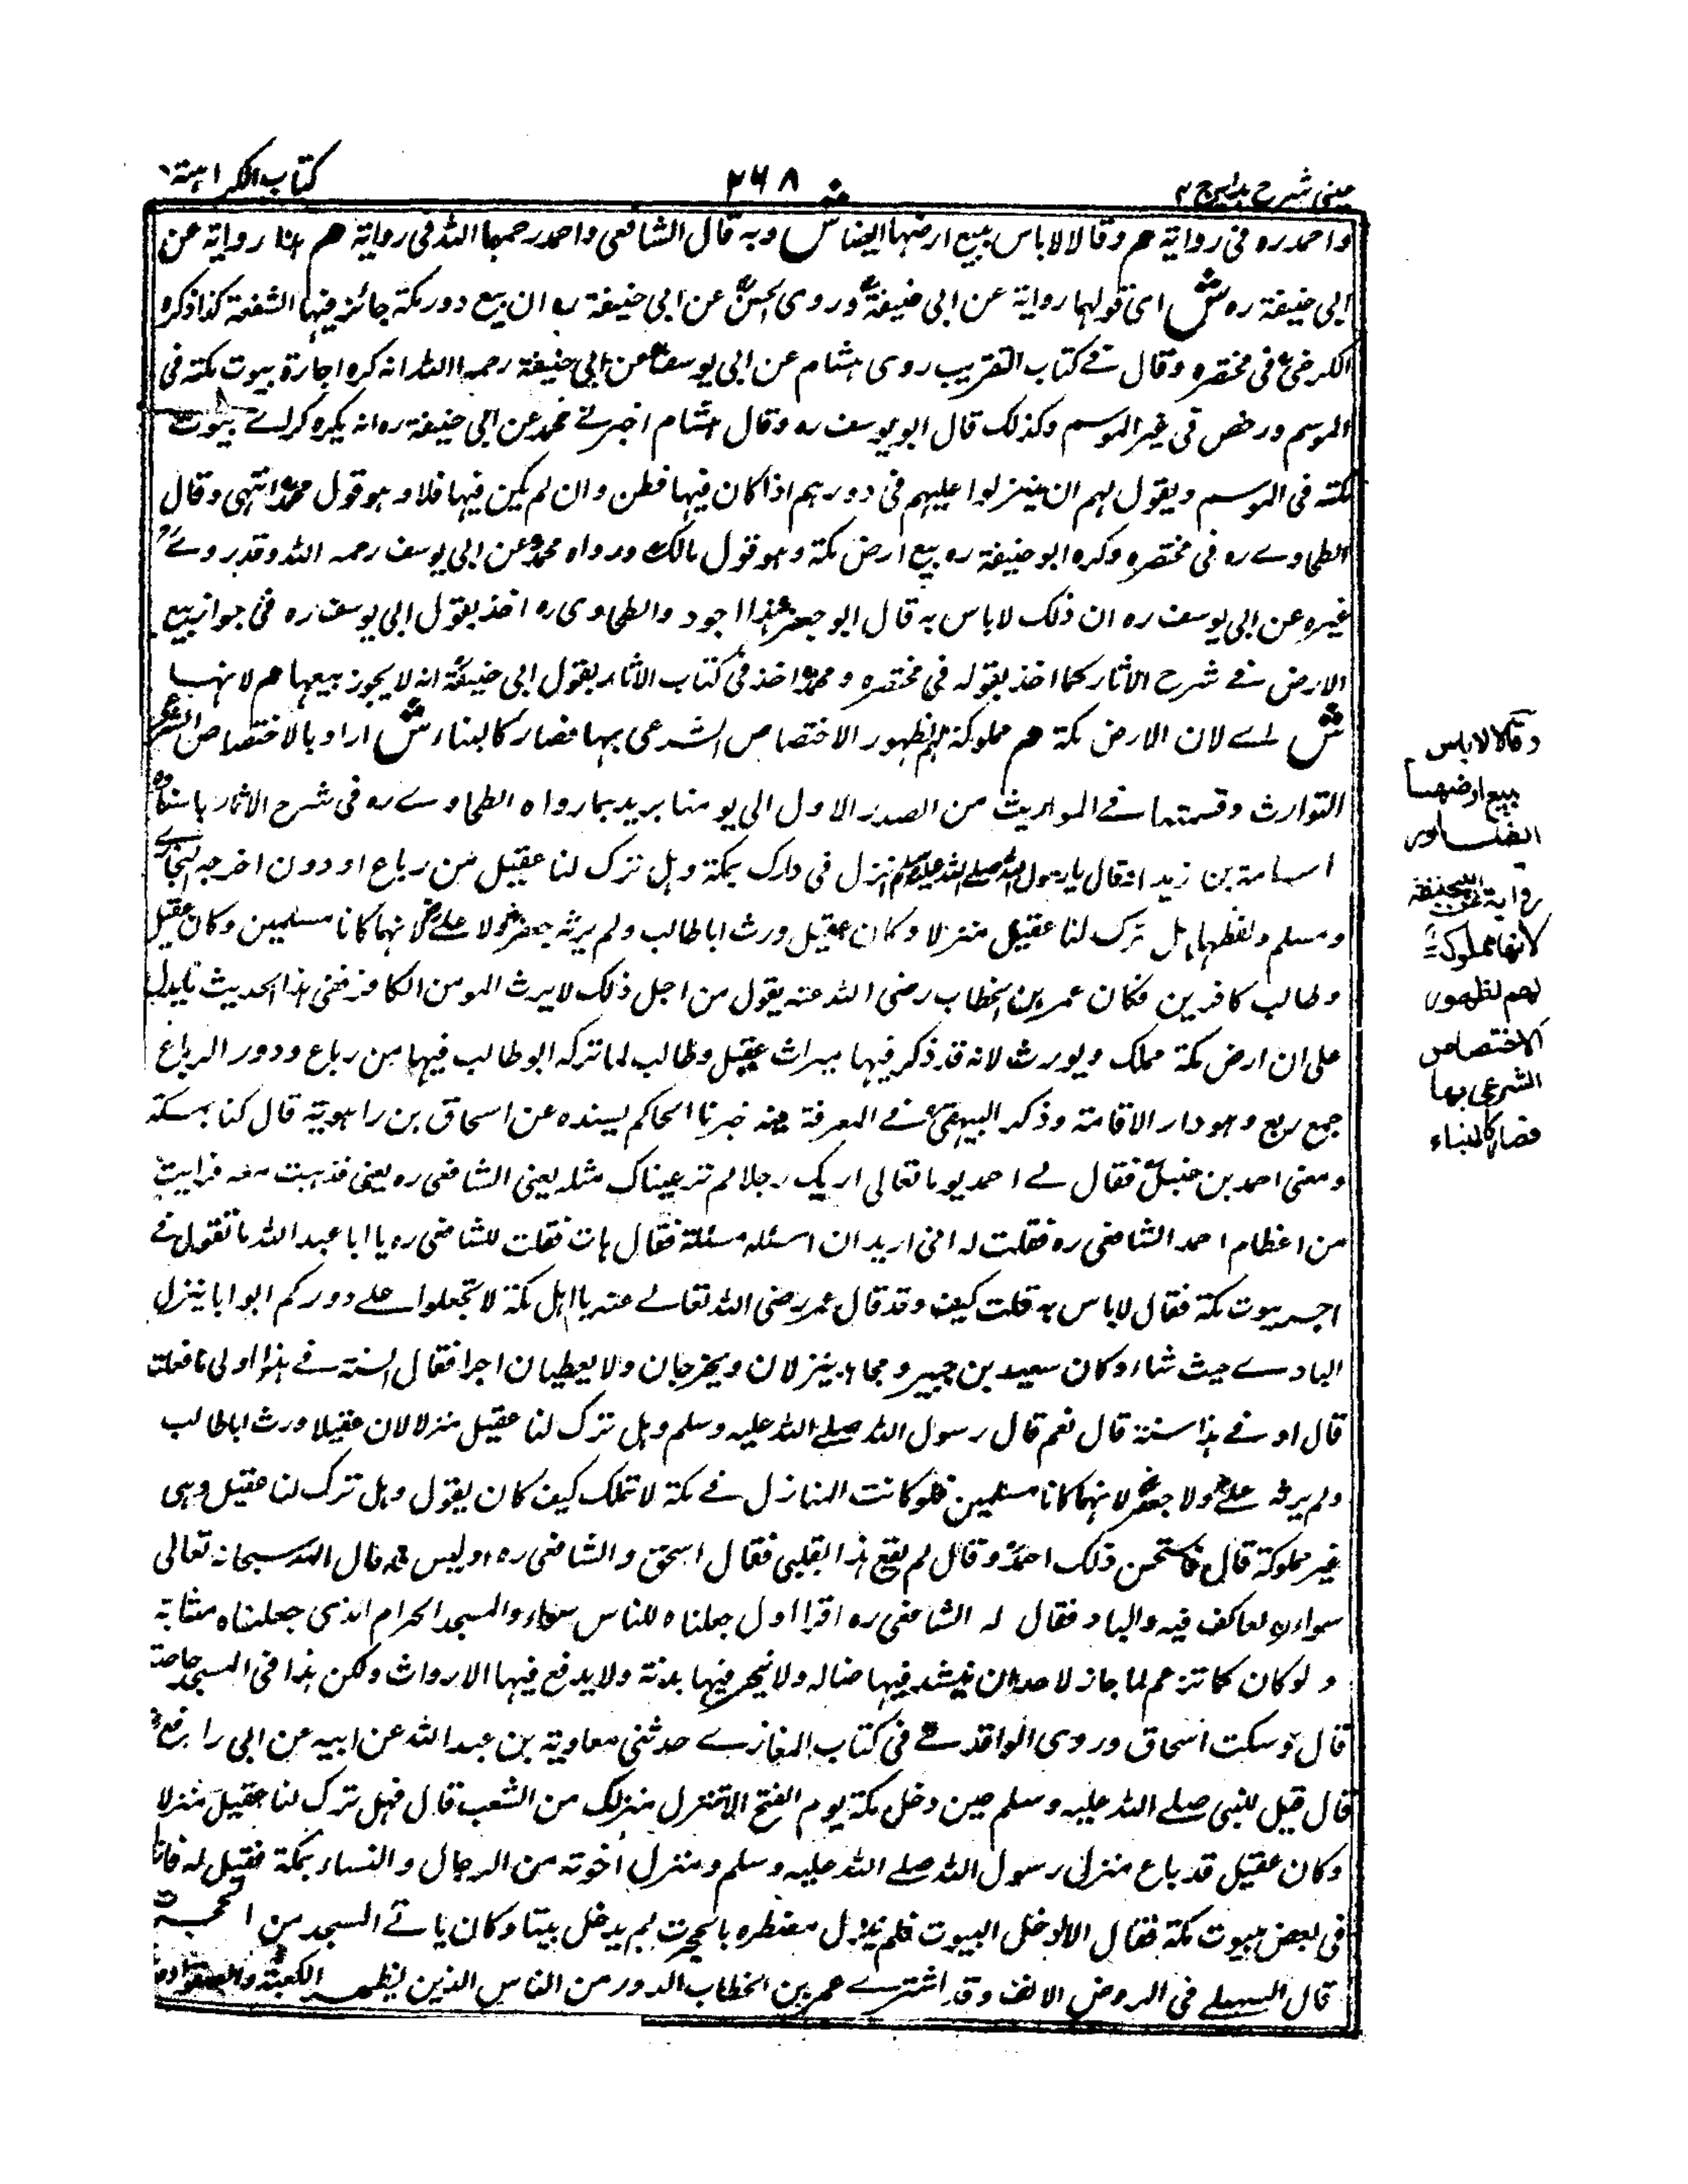 عینی شرح ہدایہ ج ۴
۲۶۸
کتاب الکراهیة
واحمد ره فی روایة هم وقالا لا باس ببیع ارضها ایضا ش وبه قال الشافعی واحمد رحمهما الله فی روایة هم هذا روایة عن
ابی حنیفة ره ش ای قولهما روایة عن ابی حنیفة وروی الحسن عن ابی حنیفة ره ان بیع دور مکة جائز فیها الشفعة کذا ذکره
الکرخی فی مختصره وقال فی کتاب التقریب روی هشام عن ابی یوسف عن ابی حنیفة رحمه الله انه کره اجارة بیوت مکة فی
الموسم ورخص فی غیر الموسم وکذلک قال ابو یوسف ره وقال هشام اخبرنی محمد عن ابی حنیفة ره انه یکره کرای بیوت
مکة فی الموسم ویقول لهم ان ینزلوا علیهم فی دورهم اذا کان فیها فضل وان لم یکن فیها فلا وهو قول محمد انتهی وقال
الطحاوی ره فی مختصره وکره ابو حنیفة ره بیع ارض مکة وهو قول مالک ورواه محمد عن ابی یوسف رحمه الله وقد روی
غیره عن ابی یوسف ره ان ذلک لا باس به قال ابو جعفر هذا اجود والطحاوی ره اخذ بقول ابی یوسف ره فی جواز بیع
الارض فی شرح الاثار کما اخذ بقوله فی مختصره ومحمد اخذ فی کتاب الاثار بقول ابی حنیفة انه لا یجوز بیعها هم لانها
ش ای لان الارض مکة هم مملوکة لهم لظهور الاختصاص الشرعی بها فصار کالبناء ش اراد بالاختصاص الشرعی
التوارث وقسمتها فی المواریث من الصدر الاول الی یومنا یرید بما رواه الطحاوی ره فی شرح الاثار باسناده
اسامة بن زید انه قال یا رسول الله صلی الله علیه وسلم انزل فی دارک بمکة وهل ترک لنا عقیل من رباع او دور اخرجه البخاری
ومسلم ولفظهما هل ترک لنا عقیل منزلا وکان عقیل ورث ابا طالب ولم یرثه جعفر ولا علی لانهما کانا مسلمین وکان عقیل
وطالب کافرین فکان عمر بن الخطاب رضی الله عنه یقول من اجل ذلک لا یرث المومن الکافر ففی هذا الحدیث ما یدل
علی ان ارض مکة تملک ویورث لانه قد ذکر فیها میراث عقیل وطالب لما ترکه ابو طالب فیها من رباع ودور الرباع
جمع ربع وهو دار الاقامة وذکر البیهقی فی المعرفة خبرنا الحاکم بسنده عن اسحاق بن راهویة قال کنا بمکة
ومعی احمد بن حنبل فقال لی احمد یوما تعالی اریک رجلا لم تر عیناک مثله یعنی الشافعی ره یعنی فذهبت معه فرایت
من اعظام احمد الشافعی ره فقلت له انی ارید ان اسئله مسئلة فقال هات فقلت للشافعی ره یا ابا عبد الله ما تقول فی
اجر بیوت مکة فقال لا باس به قلت کیف وقد قال عمر رضی الله تعالی عنه یا اهل مکة لا تجعلوا علی دورکم ابوابا ینزل
البادی حیث شاء وکان سعید بن جبیر ومجاهد ینزلان ویخرجان ولا یعطیان اجرا فقال السنة فی هذا اولی ما فعلت
قال او فی هذا سنة قال نعم قال رسول الله صلی الله علیه وسلم وهل ترک لنا عقیل منزلا لان عقیلا ورث ابا طالب
ولم یرثه علی ولا جعفر لانهما کانا مسلمین فلو کانت المنازل فی مکة لا تملک کیف کان یقول وهل ترک لنا عقیل وهی
غیر مملوکة قال فاستحسن ذلک احمد وقال لم یقع هذا بقلبی فقال اسحق والشافعی ره او لیس قد قال الله سبحانه تعالی
سواء العاکف فیه والباد فقال له الشافعی ره اقرا اول جعلناه للناس سواء والمسجد الحرام الذی جعلناه مثابة
ولو کان کما تزعم لما جاز لاحد ان ینشد فیها ضاله ولا ینحر فیها بدنة ولا یدفع فیها الارواث ولکن هذا فی المسجد خاصة
قال فسکت اسحاق وروی الواقدی فی کتاب المغازی حدثنی معاویة بن عبد الله عن ابیه عن ابی رافع
قال قیل للنبی صلی الله علیه وسلم حین دخل مکة یوم الفتح الا تنزل منزلک من الشعب قال فهل ترک لنا عقیل منزلا
وکان عقیل قد باع منزل رسول الله صلی الله علیه وسلم ومنزل اخوته من الرجال والنساء بمکة فقیل له فانزل
فی بعض بیوت مکة فقال لا ادخل البیوت فلم یزل مضطره بالحجون لم یدخل بیتا وکان یاتی المسجد من الحجون
قال السهیلی فی الروض الانف وقد اشتری عمر بن الخطاب الدور من الناس الذین الکعبة
وقالا لا باس
ببیع ارضها
ایضا وهی
روایة عن ابی حنیفة
لانها مملوکة
لهم لظهور
الاختصاص
الشرعی بها
فصار کالبناء